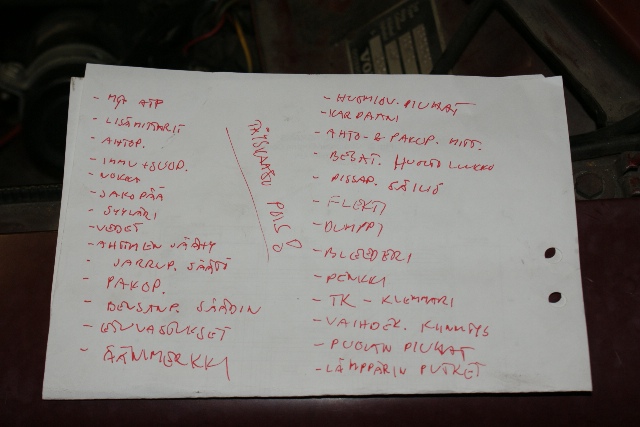 - LISÄMITTARIT
- AHTOP.
- IMMU + SUOD.
- NOKKA
- JAKOPÄÄ
- SYYLÄRI
- VEDET
- AHTIMEN JÄÄHY
- JARRUP. SÄÄTÖ
- PAKOP.
- BENSANP. SÄÄDIN
- ÄÄNIMERKKI
TÄYSKAASU POIS!
- HUOHIOU. PIUHAT
- KARDAANI
- AHTO- & PAKOP. MITT.
- BENSAT. HUOLTOLUKKO
- PISSAP. SÄILIÖ
- FLEKTI
- DUMPPI
- BLEEDERI
- PENKKI
- TK - KLEMMARI
- VAIHDEK. KIINNITYS
- PUOLAN PIUHAT
- LÄMPPÄRIN PUTKET